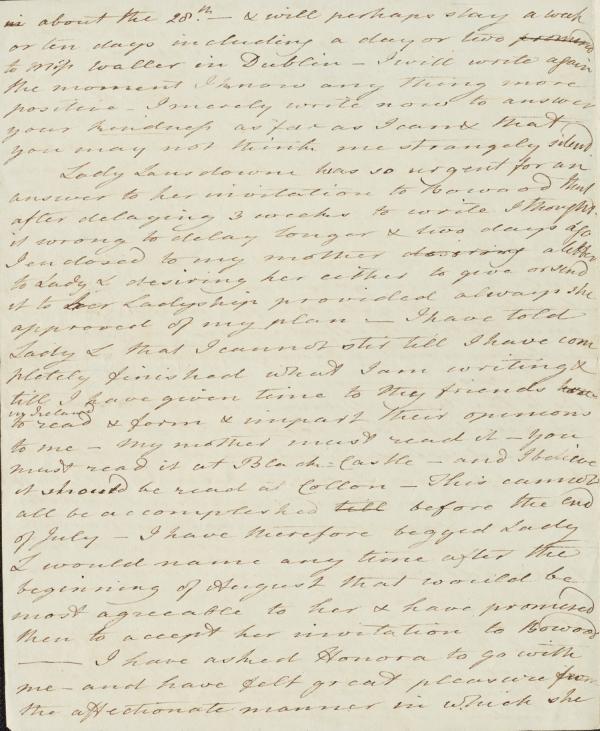 in about the 28.th — & will perhaps stay a week
or ten days including a day or two promised
to Miss Waller in Dublin — I will write again
the moment I know any thing more
positive — I merely write now to answer
your kindness as far as I can & that
you may not think me strangely silent
Lady Lansdowne was so urgent for an
answer to her invitation to Bowood that
after delaying 3 weeks to write I thought
it wrong to delay longer & two days ago
I enclosed to my mother desiring a letter
to Lady L desiring her either to give or send
it to her Ladyship provided always she
approved of my plan — I have told
Lady L that I cannot stir till I have com
pletely finished what I am writing &
till I have given time to my friends here
in Ireland
to read & form & impart their opinions
to me — My mother must read it — You
must read it at Black-Castle — and I believe
it should be read at Collon — This cannot
all be accomplished till before the end
of July — I have therefore begged Lady
L would name any time after the
beginning of August that would be
most agreeable to her & have promised
then to accept her invitation to Bowood
— I have asked Honora to go with
me — and have felt great pleasure from
the affectionate manner in which she